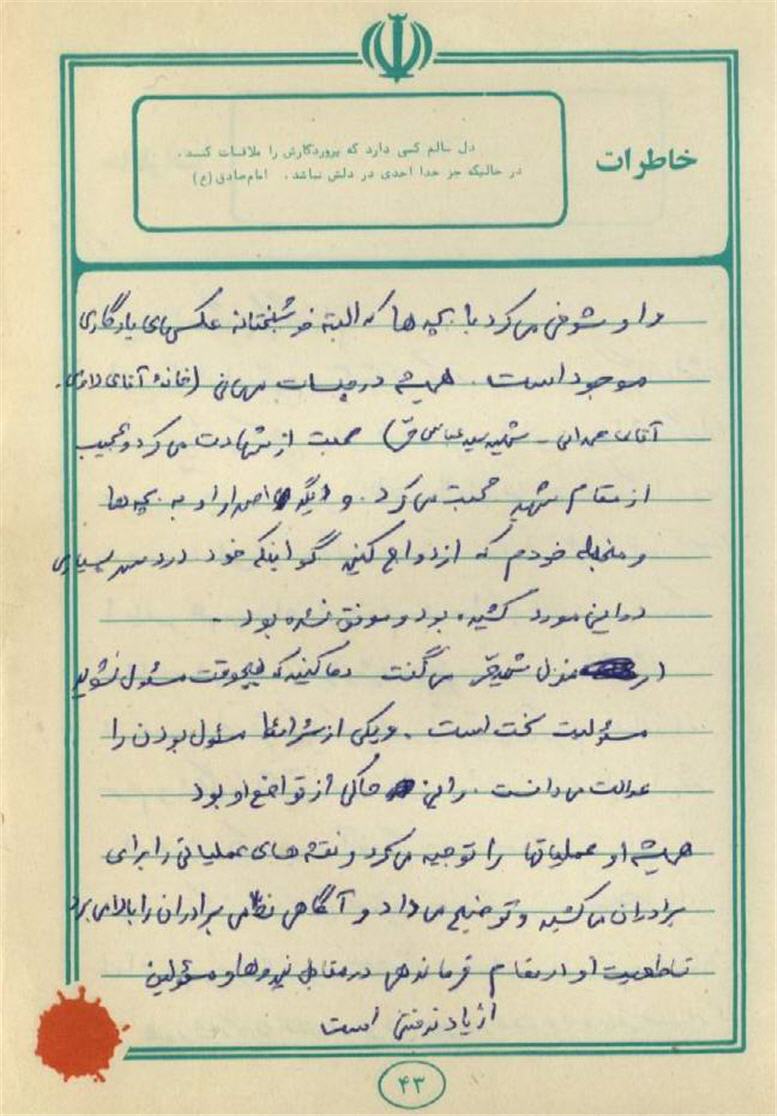 خاطرات
دل سالم کسی دارد که پروردگارش را ملاقات کند.
در حالیکه جز خدا احدی در دلش نباشد. امام صادق (ع)
و او شوخی می کرد با بچه ها که البته خوشبختانه عکسهای یادگاری
موجود است. همیشه در جلسات مهمانی (خانۀ آقای
آقای همدانی - شهید سید عباس حق) صحبت از شهادت می کرد و عجیب
از مقام شهید صحبت می کرد. و دیگر اصرار او به بچه ها
و منجمله خودم که ازدواج کنید گو اینکه خود دردسر بسیاری
در این مورد کشیده بود و موفق نشده بود.
منزل شهید می گفت دعا کنید که هیچوقت مسئول نشوید
مسئولیت سخت است. و یکی از شرائط مسئول بودن را
عدالت می دانست. و این حاکی از تواضع او بود
همیشه او عملیاتها را توجیه می کرد و نقشه های عملیاتی را برای
برادران می کشید و توضیح می داد و آگاهی نظامی برادران را بالا می برد
قاطعیت او در مقام فرماندهی در مقابل نیروها و مسئولین
از یاد نرفتنی است
۴۳